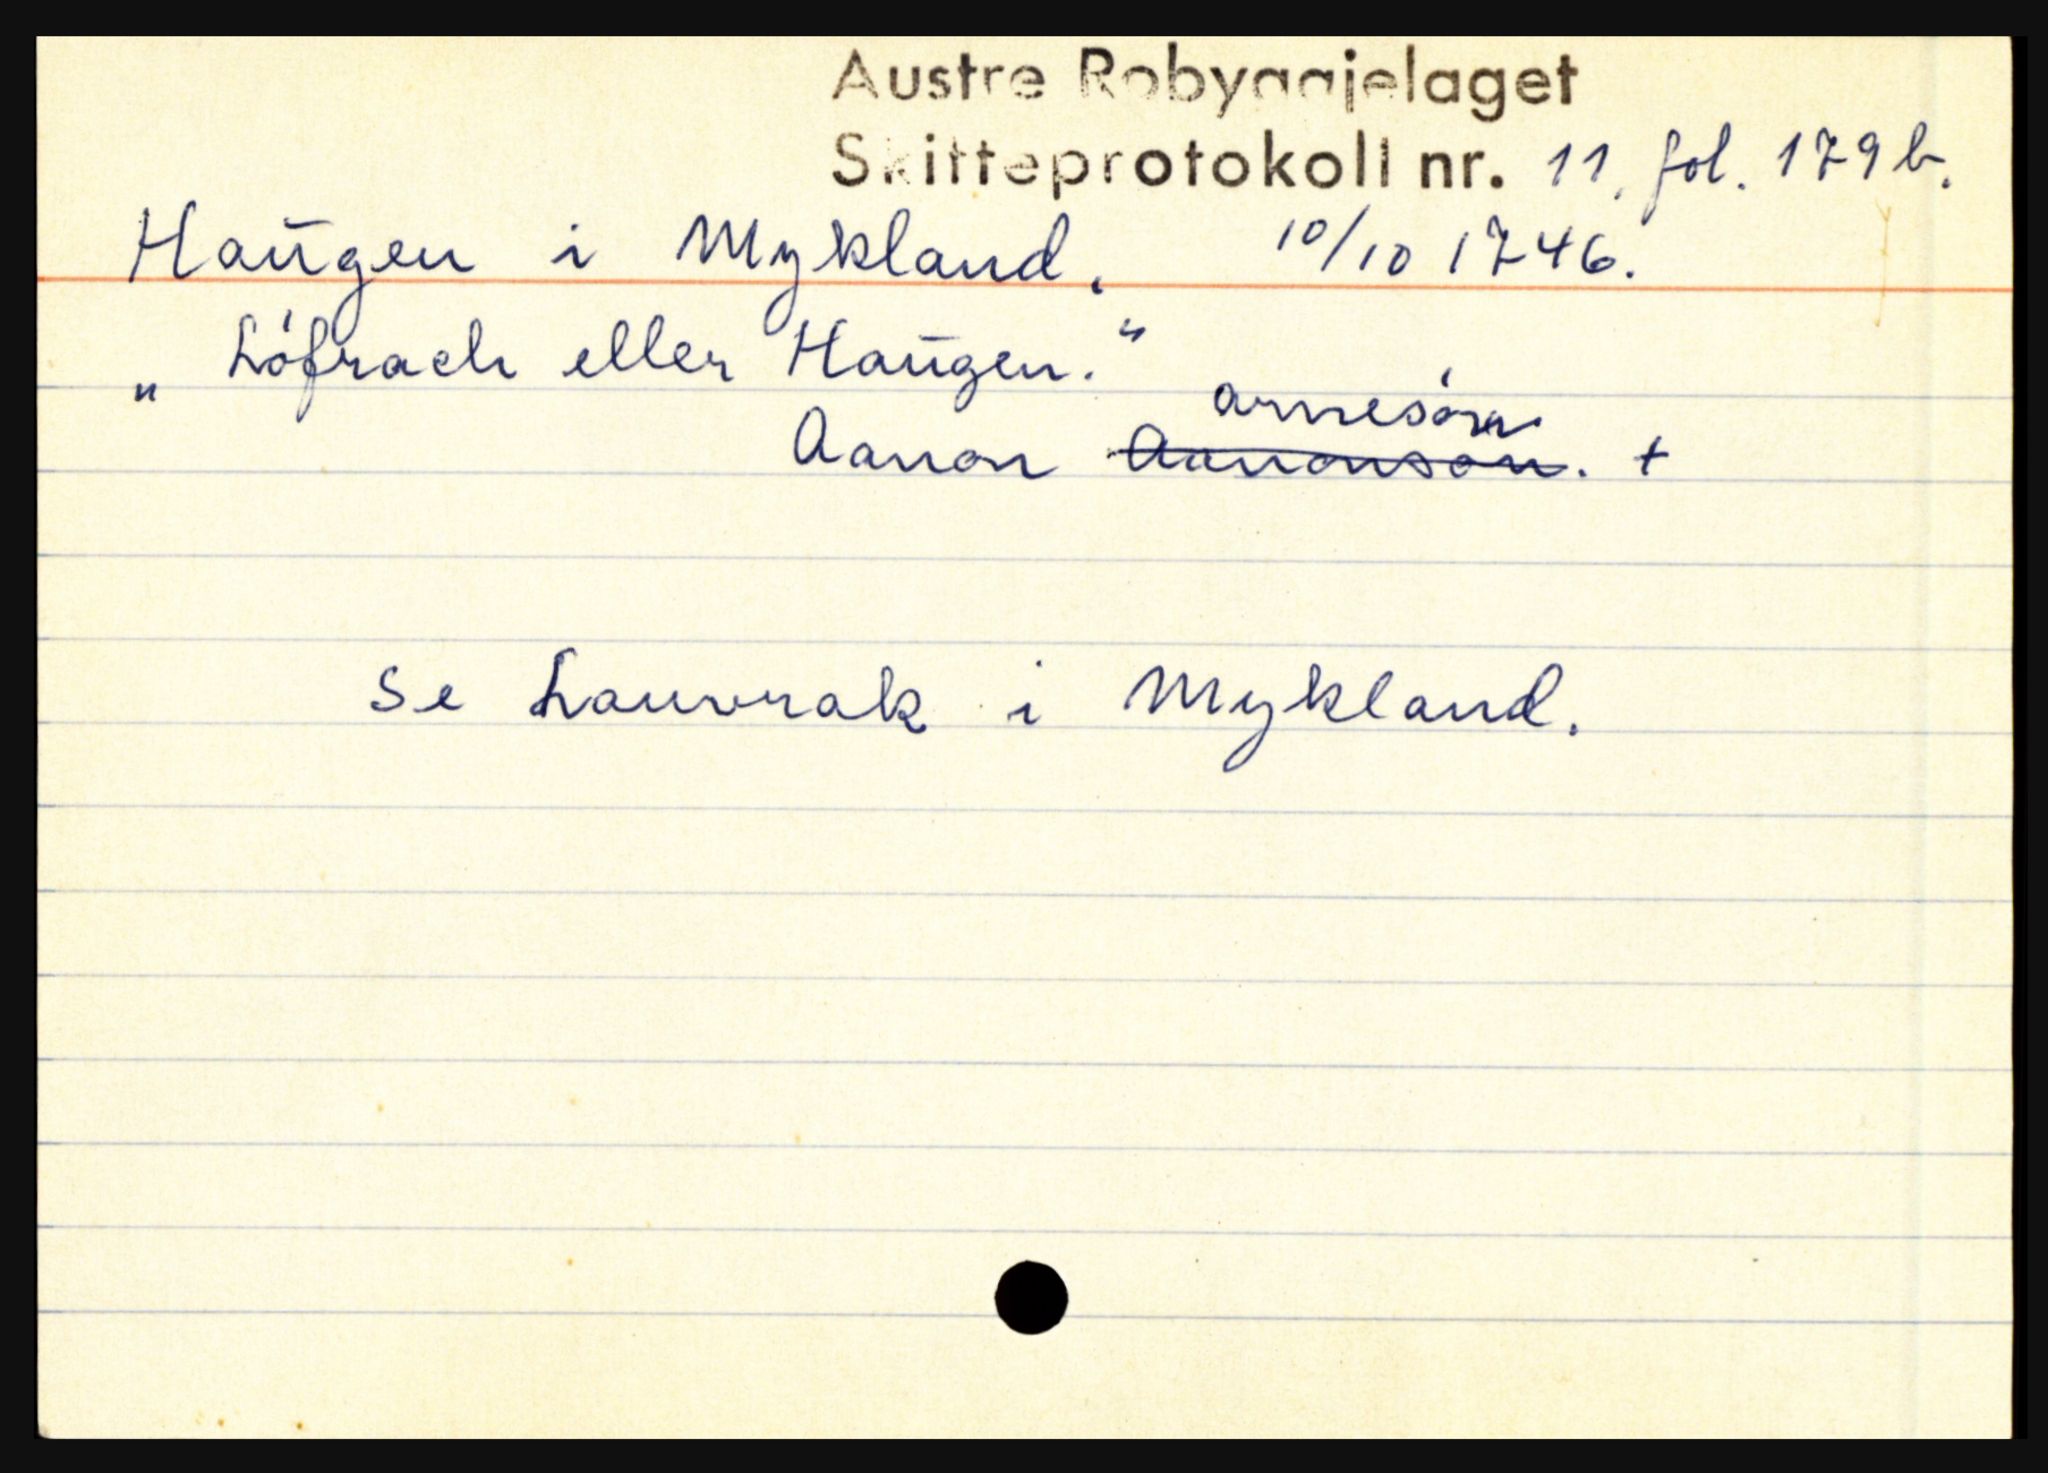 Austre Robyggjelaget
Skifteprotokoll nr. 11, fol. 179 b.
Haugen i Mykland. 10/10 1746.
„ Lófrach eller Haugen.“
Arnesón
Aanon Aanonson. +
Se Lauvrak i Mykland.